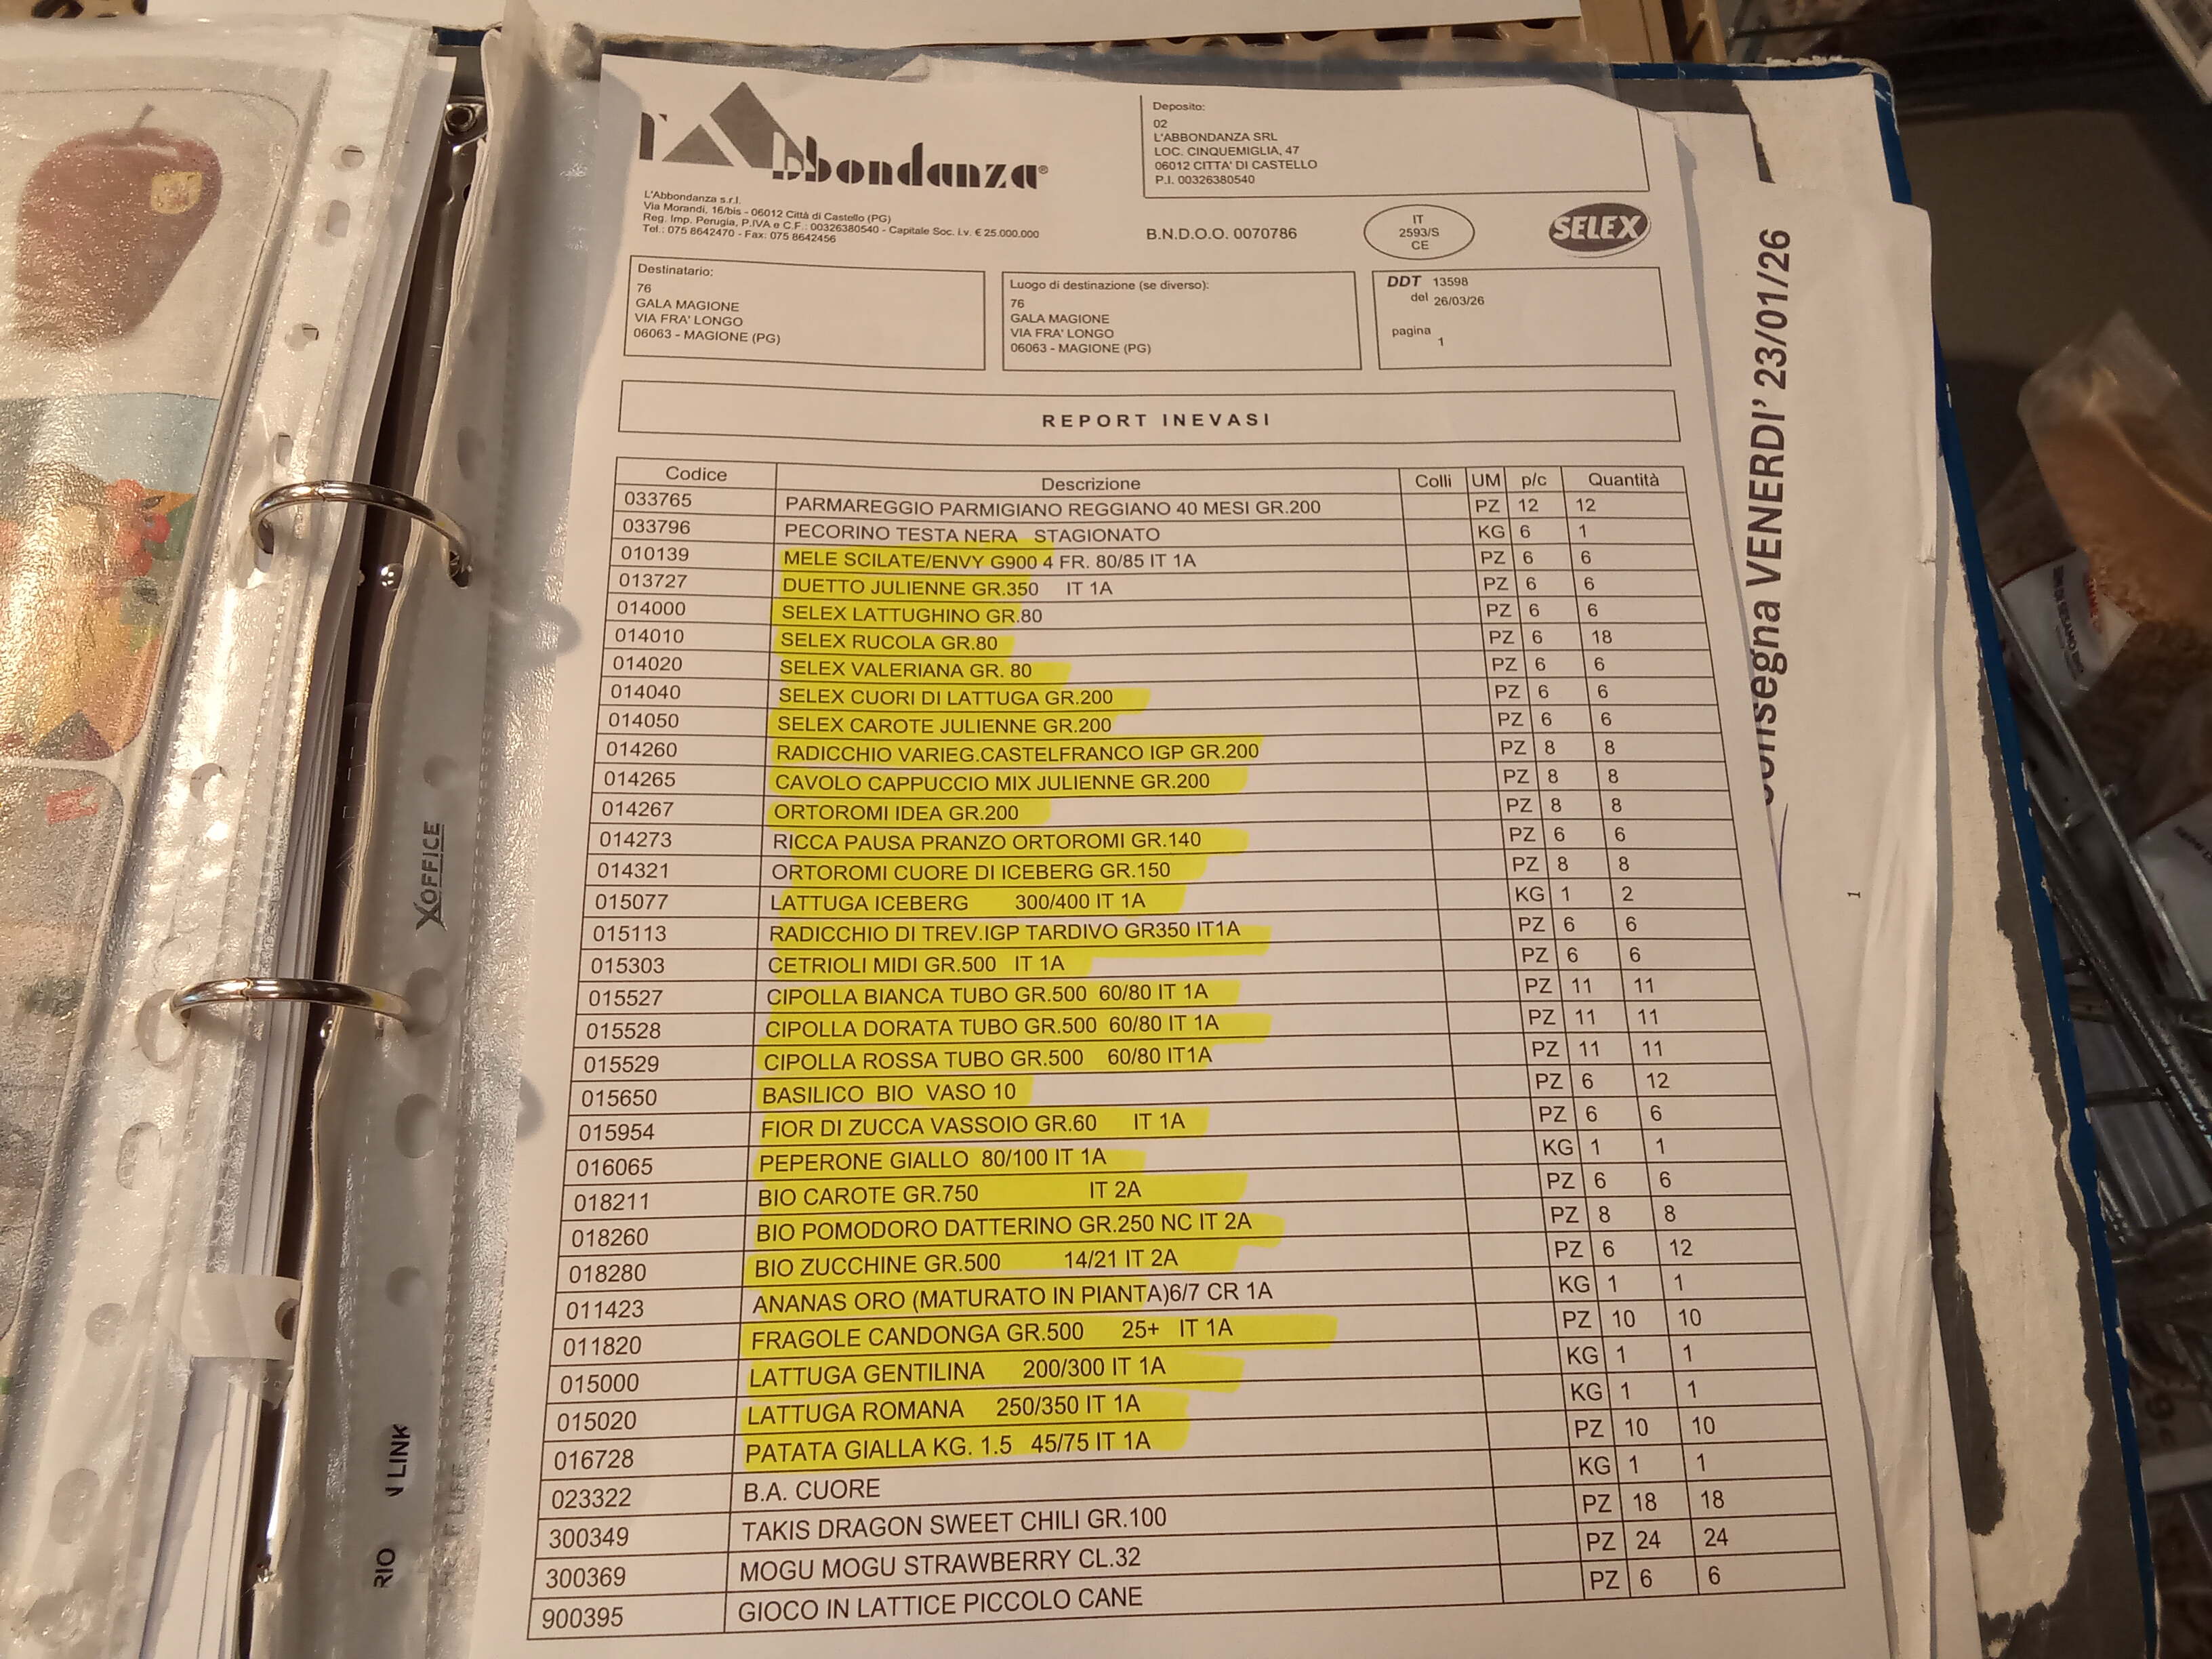 L'Abbondanza®
L'Abbondanza s.r.l.
Via Morandi, 16/bis - 06012 Città di Castello (PG)
Reg. Imp. Perugia, P.IVA e C.F.: 00326380540 - Capitale Soc. i.v. € 25.000.000
Tel.: 075 8642470 - Fax: 075 8642456
Deposito:
02
L'ABBONDANZA SRL
LOC. CINQUEMIGLIA, 47
06012 CITTA' DI CASTELLO
P.I. 00326380540
B.N.D.O.O. 0070786
IT
2593/S
CE
SELEX
Destinatario:
76
GALA MAGIONE
VIA FRA' LONGO
06063 - MAGIONE (PG)
Luogo di destinazione (se diverso):
76
GALA MAGIONE
VIA FRA' LONGO
06063 - MAGIONE (PG)
DDT 13598
del 26/03/26
pagina
1
REPORT INEVASI
Codice Descrizione Colli UM p/c Quantità
033765 PARMAREGGIO PARMIGIANO REGGIANO 40 MESI GR.200 PZ 12 12
033796 PECORINO TESTA NERA STAGIONATO KG 6 1
010139 MELE SCILATE/ENVY G900 4 FR. 80/85 IT 1A PZ 6 6
013727 DUETTO JULIENNE GR.350 IT 1A PZ 6 6
014000 SELEX LATTUGHINO GR.80 PZ 6 6
014010 SELEX RUCOLA GR.80 PZ 6 18
014020 SELEX VALERIANA GR. 80 PZ 6 6
014040 SELEX CUORI DI LATTUGA GR.200 PZ 6 6
014050 SELEX CAROTE JULIENNE GR.200 PZ 6 6
014260 RADICCHIO VARIEG.CASTELFRANCO IGP GR.200 PZ 8 8
014265 CAVOLO CAPPUCCIO MIX JULIENNE GR.200 PZ 8 8
014267 ORTOROMI IDEA GR.200 PZ 8 8
014273 RICCA PAUSA PRANZO ORTOROMI GR.140 PZ 6 6
014321 ORTOROMI CUORE DI ICEBERG GR.150 PZ 8 8
015077 LATTUGA ICEBERG 300/400 IT 1A KG 1 2
015113 RADICCHIO DI TREV.IGP TARDIVO GR350 IT1A PZ 6 6
015303 CETRIOLI MIDI GR.500 IT 1A PZ 6 6
015527 CIPOLLA BIANCA TUBO GR.500 60/80 IT 1A PZ 11 11
015528 CIPOLLA DORATA TUBO GR.500 60/80 IT 1A PZ 11 11
015529 CIPOLLA ROSSA TUBO GR.500 60/80 IT1A PZ 11 11
015650 BASILICO BIO VASO 10 PZ 6 12
015954 FIOR DI ZUCCA VASSOIO GR.60 IT 1A PZ 6 6
016065 PEPERONE GIALLO 80/100 IT 1A KG 1 1
018211 BIO CAROTE GR.750 IT 2A PZ 6 6
018260 BIO POMODORO DATTERINO GR.250 NC IT 2A PZ 8 8
018280 BIO ZUCCHINE GR.500 14/21 IT 2A PZ 6 12
011423 ANANAS ORO (MATURATO IN PIANTA)6/7 CR 1A KG 1 1
011820 FRAGOLE CANDONGA GR.500 25+ IT 1A PZ 10 10
015000 LATTUGA GENTILINA 200/300 IT 1A KG 1 1
015020 LATTUGA ROMANA 250/350 IT 1A KG 1 1
016728 PATATA GIALLA KG. 1.5 45/75 IT 1A PZ 10 10
023322 B.A. CUORE KG 1 1
300349 TAKIS DRAGON SWEET CHILI GR.100 PZ 18 18
300369 MOGU MOGU STRAWBERRY CL.32 PZ 24 24
900395 GIOCO IN LATTICE PICCOLO CANE PZ 6 6
onsegna VENERDI' 23/01/26
1
XOFFICE
RIO N LINK